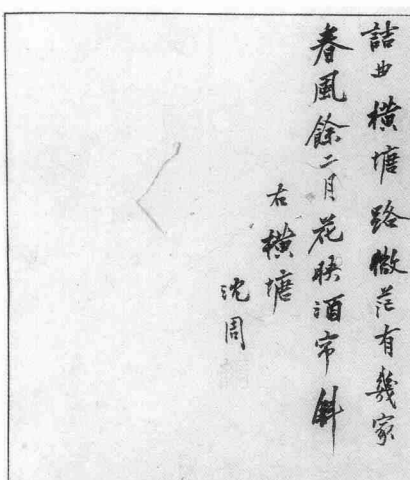 詰曲橫塘路微茫有幾家
春風餘二月花映酒帘斜
右橫塘
沈周